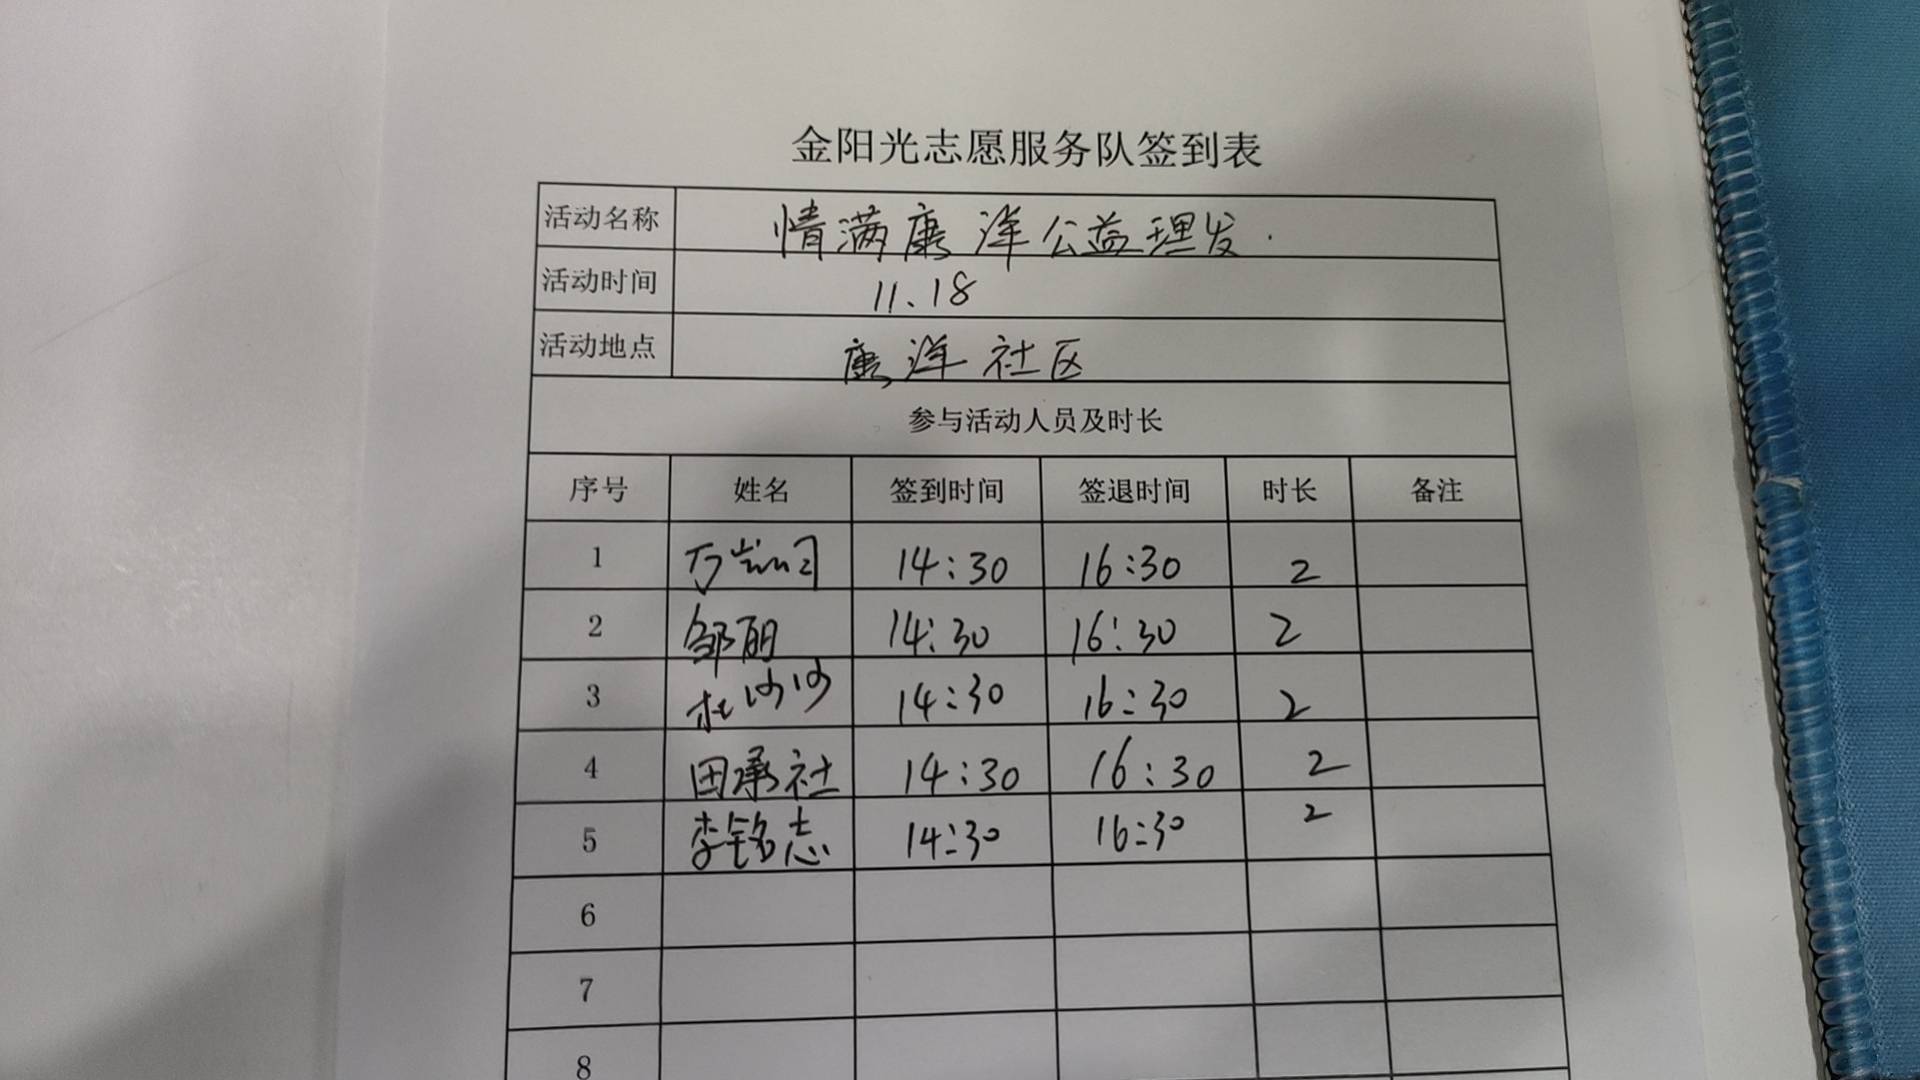 金阳光志愿服务队签到表
活动名称 情满康洋公益理发.
活动时间 11.18
活动地点 康洋社区
参与活动人员及时长
序号 姓名 签到时间 签退时间 时长 备注
1 14:30 16:30 2
2 邹丽 14:30 16:30 2
3 杜沙沙 14:30 16:30 2
4 田承社 14:30 16:30 2
5 李铭志 14:30 16:30 2
6
7
8